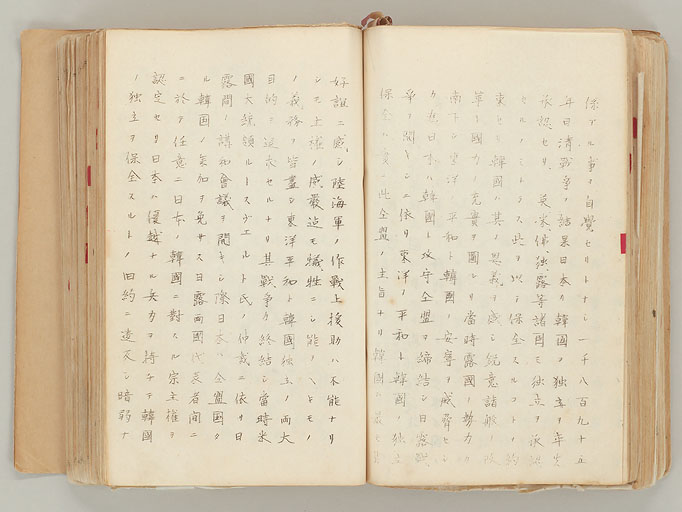 保アル事ヲ自覺セリトナシ一千八百九十五
年日清戰爭ノ結果日本ハ韓國ヲ獨立ヲ
承認セリ 英米佛独露等諸国モ独立ヲ承認
セルノミナラス此ヲ以テ保全スルコトヲ約
東セリ韓國ハ其ノ恩義ヲ感シ鋭意諸般ノ
革ト國力ノ充實ヲ圖レリ當時露國ノ勢力カ
南下シ東洋ノ平和ト韓國ノ安寧ヲ威脅セシ
日本ハ韓國ト攻守仝盟ヲ締結シ日露戰
爭ヲ開キシニ依リ東洋ノ平和ト韓國ノ独立
保全ハ實ニ此仝盟ノ主旨ナリ韓國ハ
好誼ニ感シ陸海軍ノ作戰上援助ハ不能ナリ
シモ主權ノ威嚴迄モ犧牲ニシ能ノ
ノ義務ヲ皆盡シ東洋平和ト韓國独立ノ両大
目的ニ追求セルナリ其戰爭カ終結シ當時米
國大統領ルースヴエルト氏ノ仲裁ニ依リ日
露間ノ講和會議ヲ開キシ際日本ハ仝盟國タ
ル韓國ノ参加ヲ免サス日露両國代表者間ニ
ニ於テ任意ニ日本ノ韓國ニ對スル宗主權ヲ
認定セリ日本ハ優越ナル兵力ヲ持チテ韓國
ノ独立ヲ保全スルトノ旧約ニ違反シ暗弱ナ